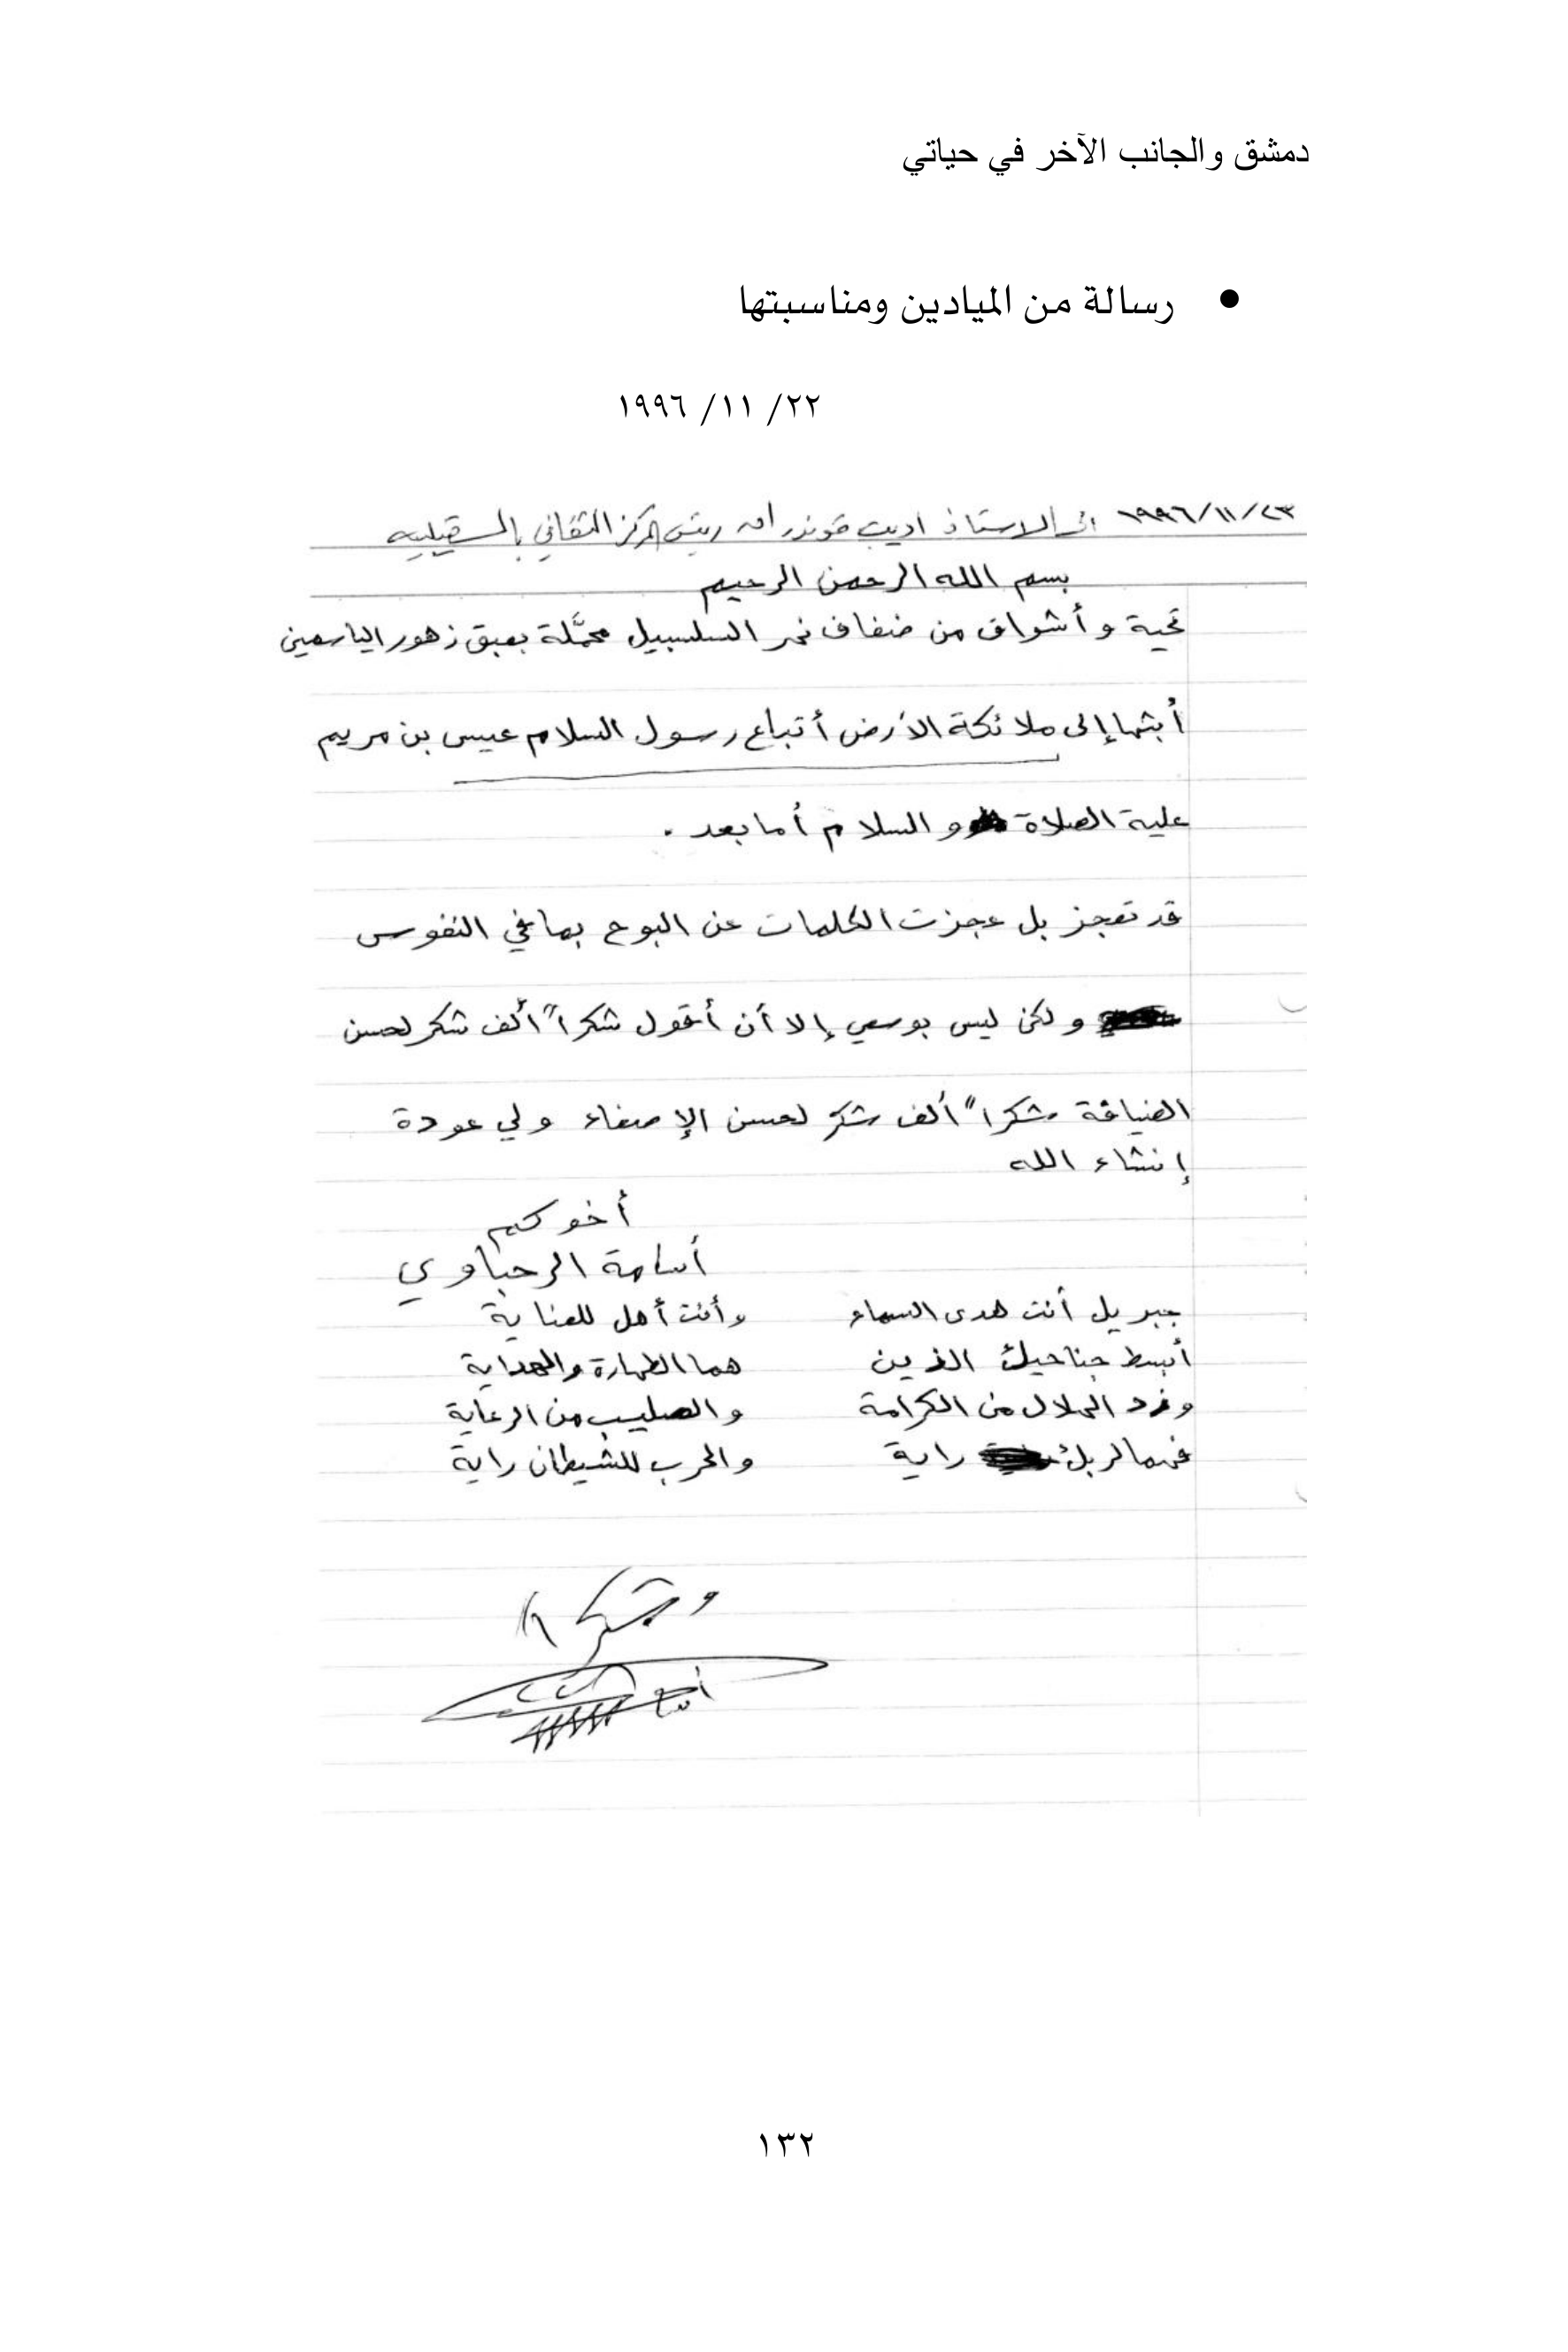 دمشق والجانب الآخر في حياتي
• رسالة من الميادين ومناسبتها
٢٢/ ١١/ ١٩٩٦
١٩٩٦/١١/٢٣ الى الاستاذ اديب قوندراق رئيس المركز الثقافي بالسقيلبيه
بسم الله الرحمن الرحيم
تحية وأشواق من ضفاف نهر السلسبيل محمَّلة بعبق زهور الياسمين
أبثها إلى ملائكة الأرض أتباع رسول السلام عيسى بن مريم
علية الصلاة والسلام أما بعد .
قد تعجز بل عجزت الكلمات عن البوح بما في النفوس
ولكن ليس بوسعي إلا أن أقول شكراً ألف شكر لحسن
الضيافة شكراً ألف شكر لحسن الإصغاء ولي عودة
إنشاء الله
أخوكم
أسامة الرحباوي
جبريل أنت هدى السماء وأنت أهل للعناية
أبسط جناحيك الذين هما الطهارة والهداية
وزد الهلال من الكرامة والصليب من الرعاية
فهما لربك راية والحرب للشيطان راية
وشكراً
١٣٢